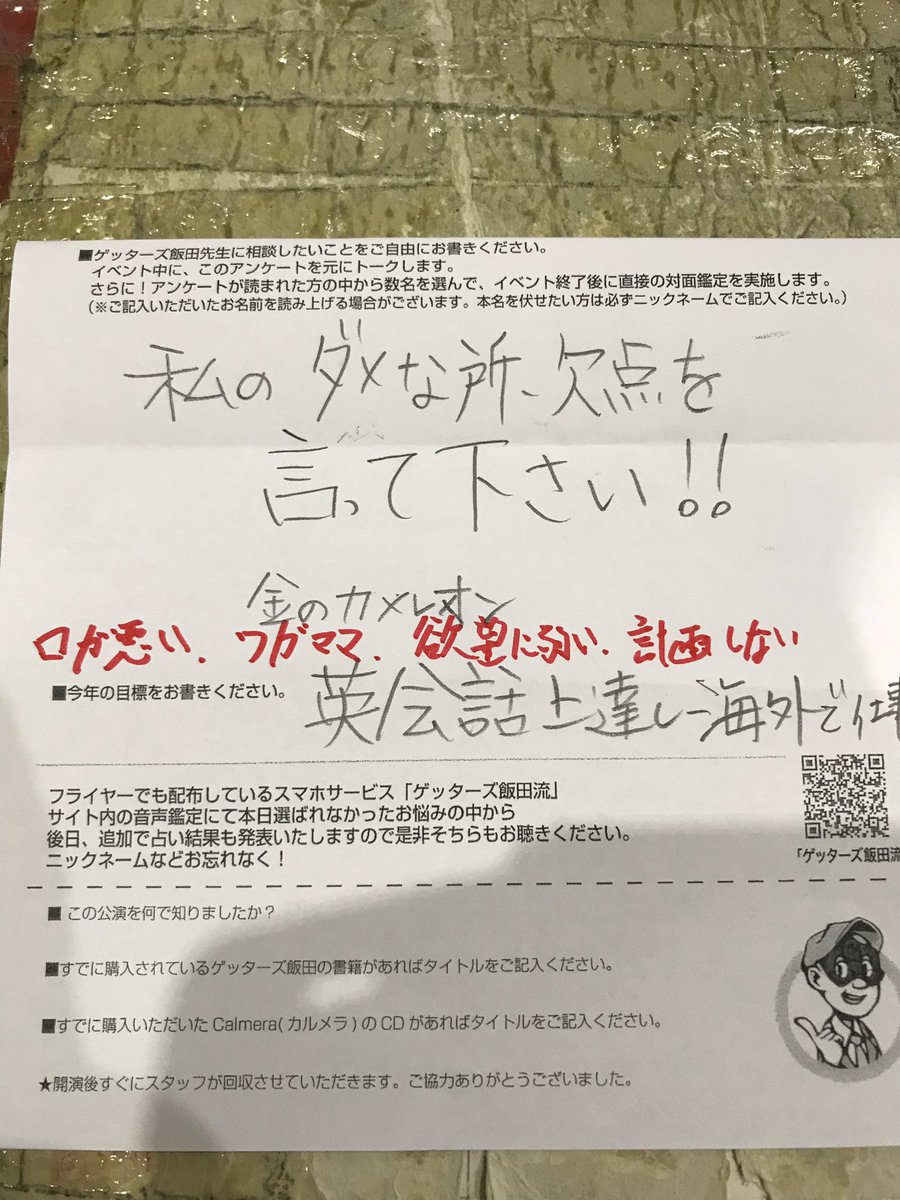 ■ゲッターズ飯田先生に相談したいことをご自由にお書きください。
イベント中に、このアンケートを元にトークします。
さらに！アンケートが読まれた方の中から数名を選んで、イベント終了後に直接の対面鑑定を実施します。
(※ご記入いただいたお名前を読み上げる場合がございます。本名を伏せたい方は必ずニックネームでご記入ください。)
私のダメな所、欠点を
言って下さい!!
金のカメレオン
口が悪い、ワガママ、欲望に弱い、計画しない
■今年の目標をお書きください。
英会話上達し海外で仕事
フライヤーでも配布しているスマホサービス「ゲッターズ飯田流」
サイト内の音声鑑定にて本日選ばれなかったお悩みの中から
後日、追加で占い結果も発表いたしますので是非そちらもお聴きください。
ニックネームなどお忘れなく！
「ゲッターズ飯田流
■この公演を何で知りましたか？
■すでに購入されているゲッターズ飯田の書籍があればタイトルをご記入ください。
■すでに購入いただいた Calmera(カルメラ)の CD があればタイトルをご記入ください。
★開演後すぐにスタッフが回収させていただきます。ご協力ありがとうございました。